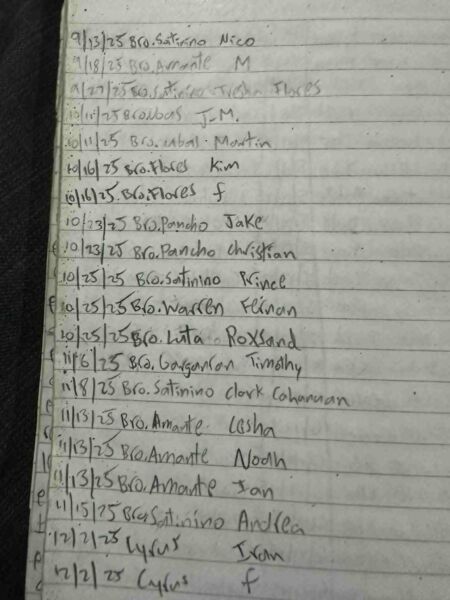 9/13/25 Bro.Satinino Nico
9/18/25 Bro.Amante M
9/27/25 Bro.Satinino Flores
10/11/25 J-M.
10/11/25 Bro. Martin
10/16/25 Bro.Flores Kim
10/16/25 Bro.Flores f
10/23/25 Bro.Pancho Jake
10/23/25 Bro.Pancho Christian
10/25/25 Bro.Satinino Prince
10/25/25 Bro.Warren Fernan
10/25/25 Bro.Luta Roxsand
11/6/25 Bro. Timothy
11/8/25 Bro.Satinino Clark
11/13/25 Bro.Amante
11/13/25 Bro.Amante Noah
11/13/25 Bro.Amante Ian
11/15/25 Bro.Satinino Andrea
12/2/25 Cyrus Ivan
12/2/25 Cyrus f